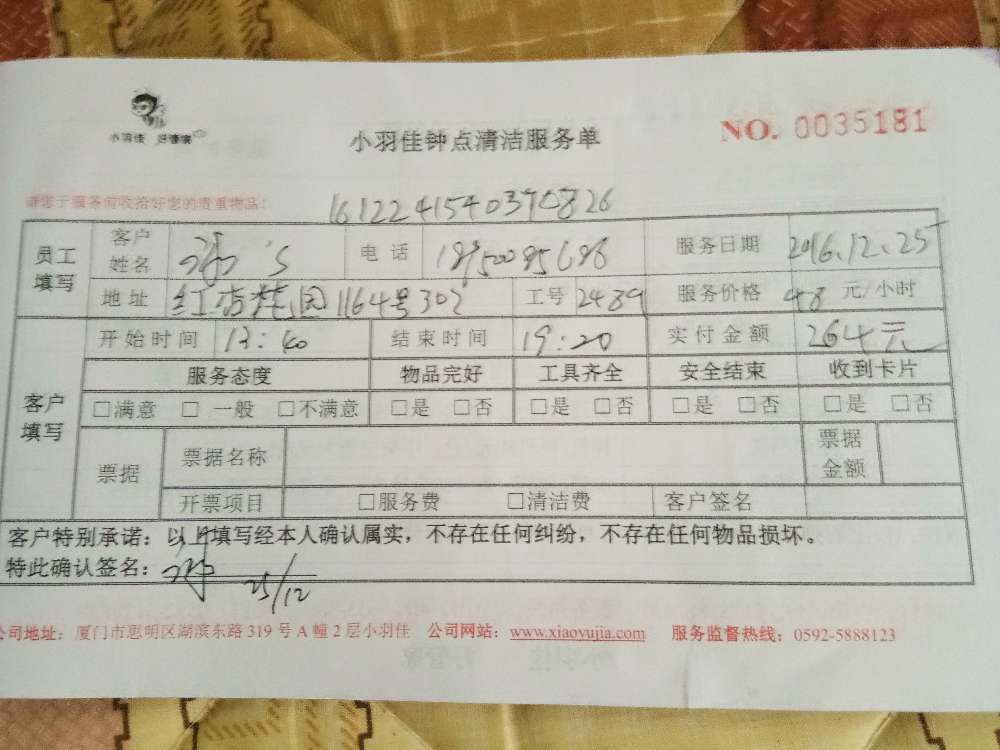 小羽佳 好管家
小羽佳钟点清洁服务单
NO. 0035181
请您于服务前收拾好您的贵重物品!
1612241540390826
员工填写 客户姓名 's 电话 18950095686 服务日期 2016.12.25
地址 红杏花园1164号302 工号 2489 服务价格 48 元/小时
客户填写 开始时间 13:40 结束时间 19:20 实付金额 264元
服务态度 物品完好 工具齐全 安全结束 收到卡片
□满意 □ 一般 □不满意 □是 □否 □是 □否 □是 □否 □是 □否
票据 票据名称 票据金额
开票项目 □服务费 □清洁费 客户签名
客户特别承诺:以上填写经本人确认属实,不存在任何纠纷,不存在任何物品损坏。
特此确认签名: 25/12
公司地址:厦门市思明区湖滨东路 319 号 A 幢 2 层小羽佳 公司网站:www.xiaoyujia.com 服务监督热线:0592-5888123